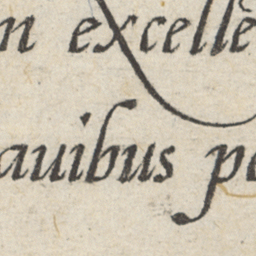 n excellē
auibus pe